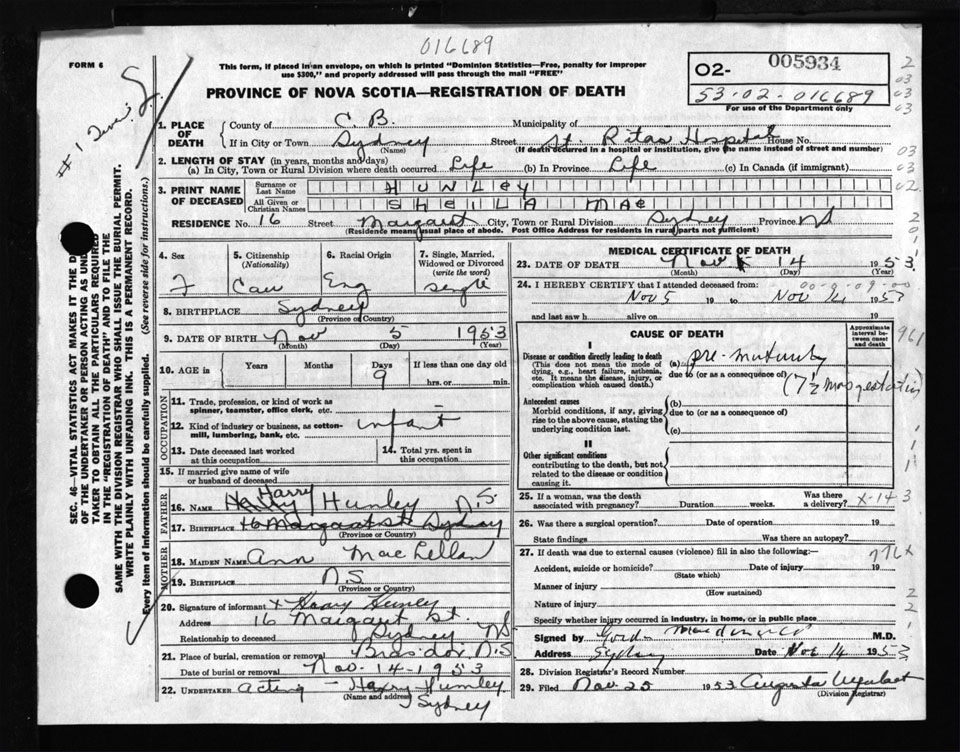 016689
FORM 6
This form, if placed in an envelope, on which is printed "Dominion Statistics—Free, penalty for improper
use $300," and properly addressed will pass through the mail "FREE"
PROVINCE OF NOVA SCOTIA—REGISTRATION OF DEATH
O2- 005934
53-02-016689
For use of the Department only
#1
SEC. 46—VITAL STATISTICS ACT MAKES IT THE D
OF THE UNDERTAKER OR PERSON ACTING AS UND
TAKER TO OBTAIN ALL THE PARTICULARS REQUIRED
IN THE "REGISTRATION OF DEATH" AND TO FILE THE
SAME WITH THE DIVISION REGISTRAR WHO SHALL ISSUE THE BURIAL PERMIT.
WRITE PLAINLY WITH UNFADING INK. THIS IS A PERMANENT RECORD.
Every item of information should be carefully supplied. (See reverse side for instructions.)
1. PLACE OF DEATH
County of C. B. Municipality of
If in City or Town Sydney Street St. Ritas Hospital House No.
(Name) (If death occurred in a hospital or institution, give the name instead of street and number)
2. LENGTH OF STAY (in years, months and days)
(a) In City, Town or Rural Division where death occurred Life (b) In Province Life (c) In Canada (if immigrant)
3. PRINT NAME OF DECEASED
Surname or Last Name HUNLEY
All Given or Christian Names SHEILA MAE
RESIDENCE No. 16 Street Margaret City, Town or Rural Division Sydney Province NS
(Residence means usual place of abode. Post Office Address for residents in rural parts not sufficient)
4. Sex
F
5. Citizenship (Nationality)
Can
6. Racial Origin
Eng
7. Single, Married, Widowed or Divorced (write the word)
single
8. BIRTHPLACE Sydney
(Province or Country)
9. DATE OF BIRTH Nov 5 1953
(Month) (Day) (Year)
10. AGE in Years Months Days 9 If less than one day old
hrs. or min.
OCCUPATION
11. Trade, profession, or kind of work as
spinner, teamster, office clerk, etc.
12. Kind of industry or business, as cotton-
mill, lumbering, bank, etc. infant
13. Date deceased last worked at this occupation
14. Total yrs. spent in this occupation
15. If married give name of wife
or husband of deceased
FATHER
16. NAME Harry Hunley N.S.
17. BIRTHPLACE 16 Margaret St Sydney
(Province or Country)
MOTHER
18. MAIDEN NAME Ann MacLellan
19. BIRTHPLACE N.S.
(Province or Country)
20. Signature of informant x Harry Hunley
Address 16 Margaret St.
Relationship to deceased Sydney NS
21. Place of burial, cremation or removal Bras d'or, N.S
Date of burial or removal Nov. 14-1953
22. UNDERTAKER acting - Harry Hunley
(Name and address) Sydney
MEDICAL CERTIFICATE OF DEATH
23. DATE OF DEATH Nov 14 1953
(Month) (Day) (Year)
24. I HEREBY CERTIFY that I attended deceased from: 00-0-09-00
Nov 5 19 to Nov 14 1953
and last saw h alive on 19
CAUSE OF DEATH
Approximate interval between onset and death
I
Disease or condition directly leading to death
(This does not mean the mode of
dying, e.g., heart failure, asthenia,
etc. It means the disease, injury, or
complication which caused death.)
(a) pre-maturity
due to (or as a consequence of)
(7½ mos gestation)
Antecedent causes
Morbid conditions, if any, giving
rise to the above cause, stating the
underlying condition last.
(b)
due to (or as a consequence of)
(c)
II
Other significant conditions
contributing to the death, but not
related to the disease or condition
causing it.
25. If a woman, was the death associated with pregnancy? Duration weeks. Was there a delivery? X-143
26. Was there a surgical operation? Date of operation 19
State findings Was there an autopsy?
27. If death was due to external causes (violence) fill in also the following:— 776X
Accident, suicide or homicide? Date of injury 19
(State which)
Manner of injury
(How sustained)
Nature of injury
Specify whether injury occurred in industry, in home, or in public place
Signed by M.D.
Address Sydney Date Nov 14 1953
28. Division Registrar's Record Number
29. Filed Nov 25 1953 Augusta
(Division Registrar)